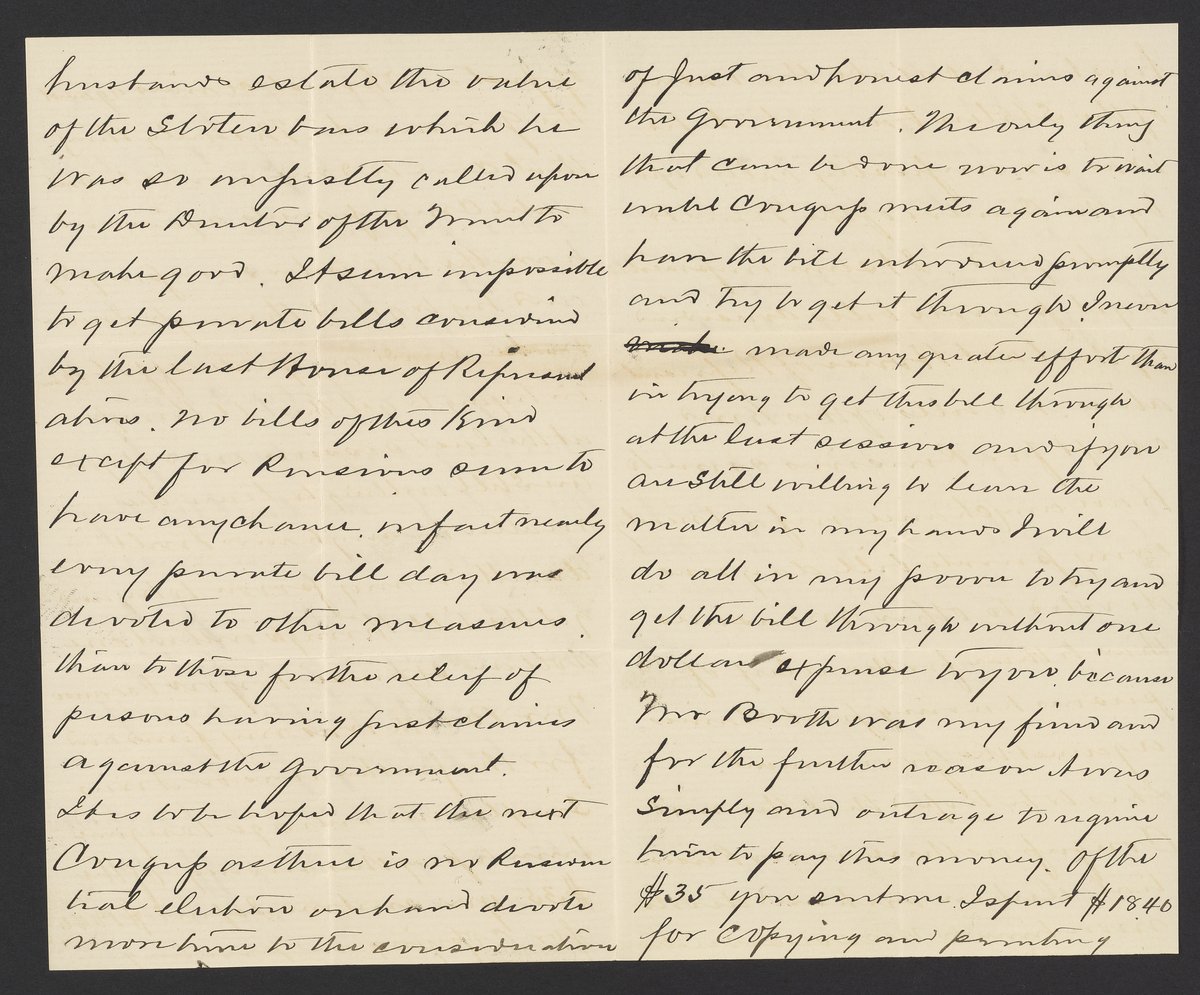 husbands estate the value
of the Stolen bars which he
was so unjustly called upon
by the Director of the Mint to
make good. It seem impossible
to get private bills considered
by the last House of Represent
atives. No bills of this Kind
except for Pensions seem to
have any chance, in fact nearly
every private bill day was
devoted to other measures.
than to those for the relief of
persons having just claims
against the government.
It is to be hoped that the next
Congress as there is no Presiden
tial election on hand devote
more time to the consideration
of Just and honest claims against
the Government. The only thing
that can be done now is to wait
until Congress meets again and
have the bill introduced promptly
and try to get it through. I never
made any greater effort than
in trying to get this bill through
at the last session and if you
are Still willing to leave the
matter in my hands I will
do all in my power to try and
get the bill through without one
dollars expense to you, because
Mr Booth was my friend and
for the further reason it was
Simply and outrage to require
him to pay this money. Of the
$35 you sent me I spent $18.40
for copying and printing